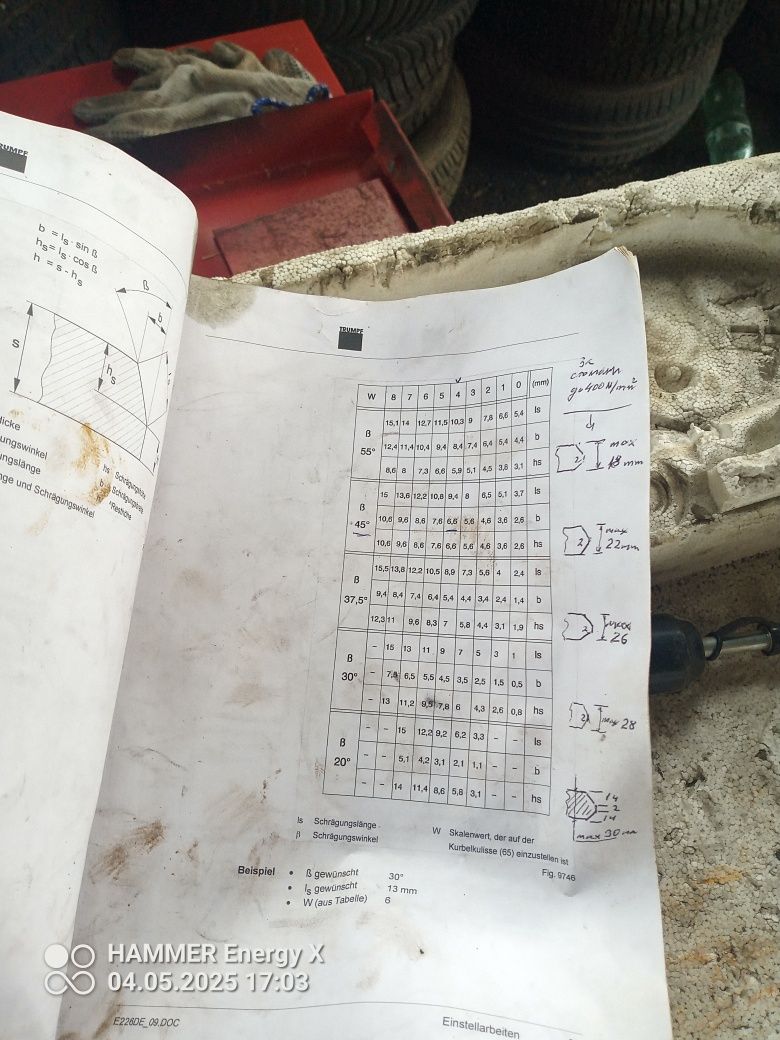 TRUMPF
b = ls · sin ß
hs = ls · cos ß
h = s - hs
ß
b
s
hs
hs Schrägungshöhe
*Resthöhe
TRUMPF
W 8 7 6 5 4 3 2 1 0 (mm)
ß 55°
15,1 14 12,7 11,5 10,3 9 7,8 6,6 5,4 ls
12,4 11,4 10,4 9,4 8,4 7,4 6,4 5,4 4,4 b
8,6 8 7,3 6,6 5,9 5,1 4,5 3,8 3,1 hs
ß 45°
15 13,6 12,2 10,8 9,4 8 6,5 5,1 3,7 ls
10,6 9,6 8,6 7,6 6,6 5,6 4,6 3,6 2,6 b
10,6 9,6 8,6 7,6 6,6 5,6 4,6 3,6 2,6 hs
ß 37,5°
15,5 13,8 12,2 10,5 8,9 7,3 5,6 4 2,4 ls
9,4 8,4 7,4 6,4 5,4 4,4 3,4 2,4 1,4 b
12,3 11 9,6 8,3 7 5,8 4,4 3,1 1,9 hs
ß 30°
- 15 13 11 9 7 5 3 1 ls
- 7,5 6,5 5,5 4,5 3,5 2,5 1,5 0,5 b
- 13 11,2 9,5 7,8 6 4,3 2,6 0,8 hs
ß 20°
- - 15 12,2 9,2 6,2 3,3 - - ls
- - 5,1 4,2 3,1 2,1 1,1 - - b
- - 14 11,4 8,6 5,8 3,1 - - hs
За
стомана
до 400 N/mm²
2 max
18 mm
2 max
22 mm
2 max
26
2 max 28
14
2
14
max 30 mm
ls Schrägungslänge
β Schrägungswinkel
W Skalenwert, der auf der
Kurbelkulisse (65) einzustellen ist
Fig. 9746
Beispiel • ß gewünscht 30°
• ls gewünscht 13 mm
• W (aus Tabelle) 6
HAMMER Energy X
04.05.2025 17:03
E226DE_09.DOC
Einstellarbeiten